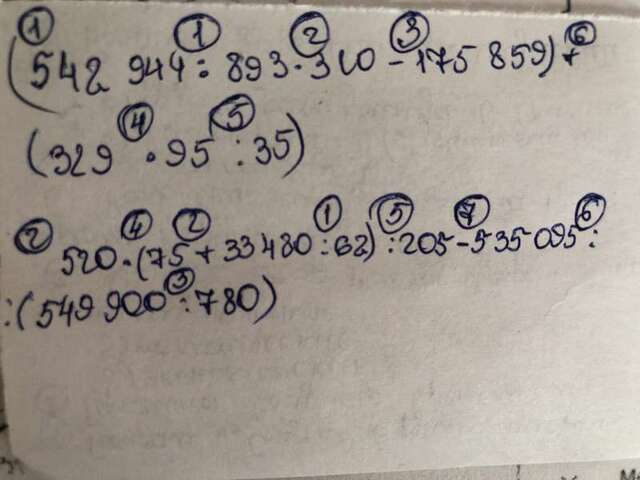 ① ① ② ③ ⑥
(542 944 : 893 · 310 - 175 859) +
④ ⑤
(329 · 95 : 35)
② ④ ② ① ⑤ ⑦ ⑥
520 · (75 + 33 480 : 62) : 205 - 535 095 :
③
: (549 900 : 780)